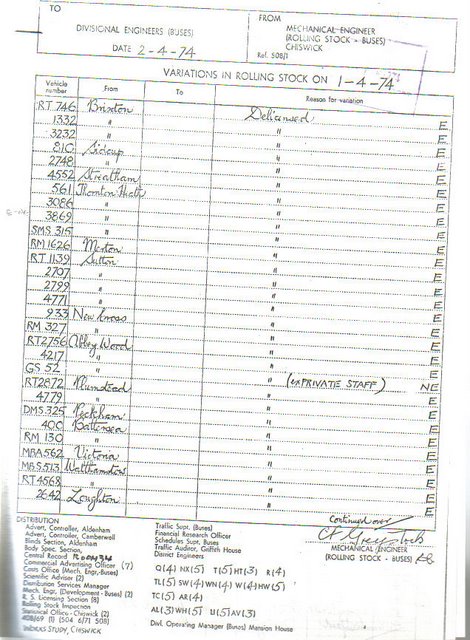 TO
DIVISIONAL ENGINEERS (BUSES)
DATE 2-4-74
FROM
MECHANICAL ENGINEER
(ROLLING STOCK - BUSES)
CHISWICK
Ref. 508/1
VARIATIONS IN ROLLING STOCK ON 1-4-74
Vehicle number From To Reason for variation
RT 746 Brixton Delicensed E
1332 " " E
3232 " " E
810 Sidcup " E
2748 " " E
4552 Streatham " E
561 Thornton Heath " E
3086 " " E
3869 " " E
SMS 315 " " E
RM 1626 Merton " E
RT 1139 Sutton " E
2707 " " E
2799 " " E
4771 " " E
933 New Cross " E
RM 327 " " E
RT2756 Abbey Wood " E
4217 " " E
GS 52 " " E
RT2872 Plumstead " (exPRIVATE STAFF) NE
4779 " " E
DMS 325 Peckham " E
400 Battersea " E
RM 130 " " E
MBA562 Victoria " E
MBS513 Walthamstow " E
RT4568 " " E
2642 Loughton " E
Continued over
MECHANICAL ENGINEER
(ROLLING STOCK - BUSES)
DISTRIBUTION
Advert. Controller, Aldenham
Advert. Controller, Camberwell
Blinds Section, Aldenham
Body Spec. Section,
Central Record
Commercial Advertising Officer (7)
Costs Office (Mech. Engr, Buses)
Scientific Adviser (2)
Distribution Services Manager
Mech. Engr. (Development - Buses) (2)
R. S. Licensing Section (8)
Rolling Stock Inspection
Statistical Office - Chiswick (2)
408/69 (1) (504 6/71 508)
WORKS STUDY, CHISWICK
Traffic Supt. (Buses)
Financial Research Officer
Schedules Supt. Buses
Traffic Auditor, Griffith House
District Engineers
Q(4) NX(5) T(5) HT(3) R(4)
TL(5) SW(4) WN(4) W(4) HW(5)
TC(5) AR(4)
AL(3) WH(5) U(5) AV(3)
Divl. Operating Manager (Buses) Mansion House